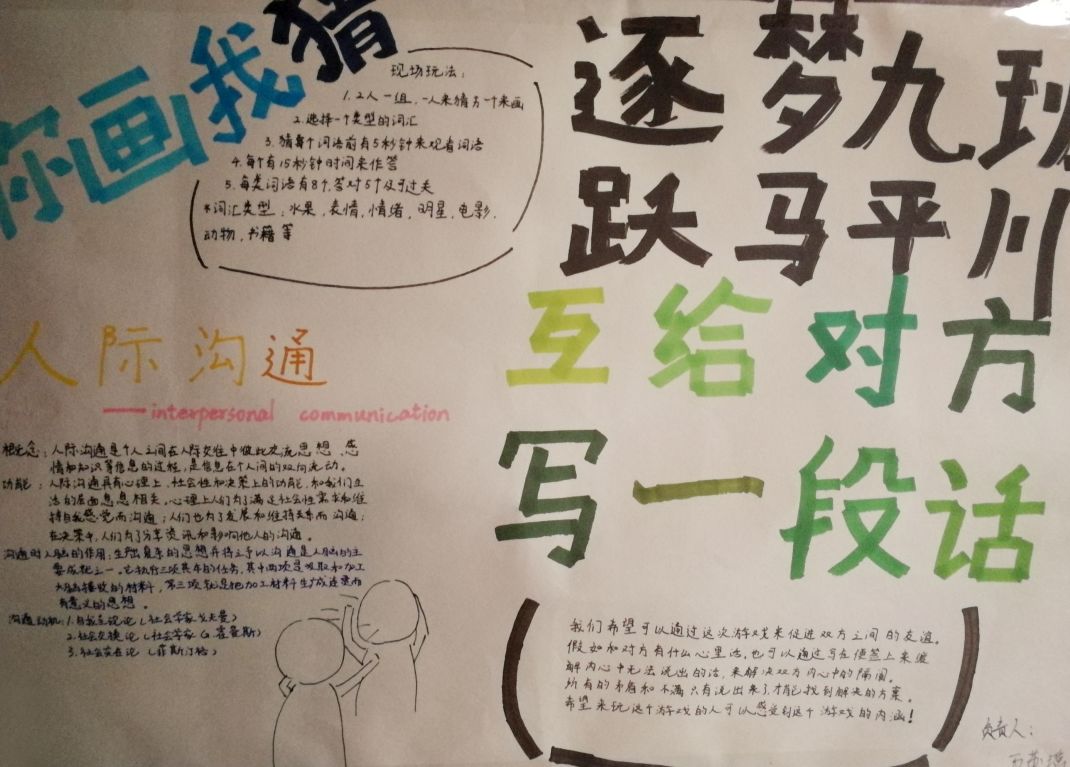 你画我猜
现场玩法：
1.2人一组，一人来猜另一个来画
2.选择一个类型的词汇
3.猜每个词语前有5秒钟来观看词语
4.每个有15秒钟时间来作答
5.每类词语有8个，答对5个及于过关
*词汇类型：水果，表情，情绪，明星，电影，
动物，书籍等
逐梦九班
跃马平川
互给对方
写一段话
人际沟通
——interpersonal communication
概念：人际沟通是个人之间在人际交往中彼此交流思想、感
情和知识等信息的过程，是信息在个人间的双向流动。
功能：人际沟通具有心理上、社会性和决策上的功能，和我们生
活的层面息息相关。心理上人们为了满足社会性需求和维
持自我感觉而沟通；人们也为了发展和维持关系而沟通；
在决策中，人们为了分享资讯和影响他人的沟通。
沟通时人脑的作用：生出复杂的思想并将之予以沟通是人脑的主
要成就之一。它执行三项基本的任务，其中两项是吸取和加工
大脑接收的材料，第三项就是把加工材料生成连贯而
有意义的思想。
沟通动机：1.自我呈现论（社会学家戈夫曼）
2.社会交换论（社会学家G.霍曼斯）
3.社会实在论（菲斯汀格）
我们希望可以通过这次游戏来促进双方之间的友谊。
假如和对方有什么心里话，也可以通过写在便签上来缓
解内心中无法说出的话，来解决双方内心中的隔阂。
所有的矛盾和不满只有说出来了才能找到解决的方案。
希望来玩这个游戏的人可以感受到这个游戏的内涵！
负责人：